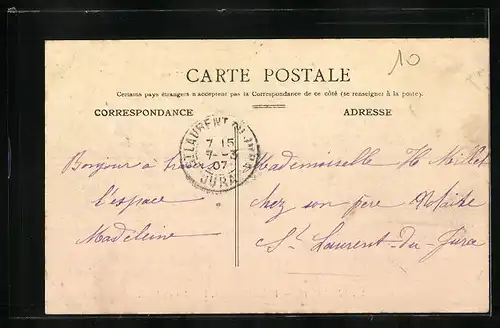 10
CARTE POSTALE
Certains pays étrangers n'acceptent pas la Correspondance de ce côté (se renseigner à la poste).
CORRESPONDANCE
ADRESSE
ST LAURENT DU JURA
7 15
7 - 3
07
JURA
Bonjour à
l'espace
Madeleine
Mademoiselle H Millet
chez son père Notaire
St Laurent-du-Jura